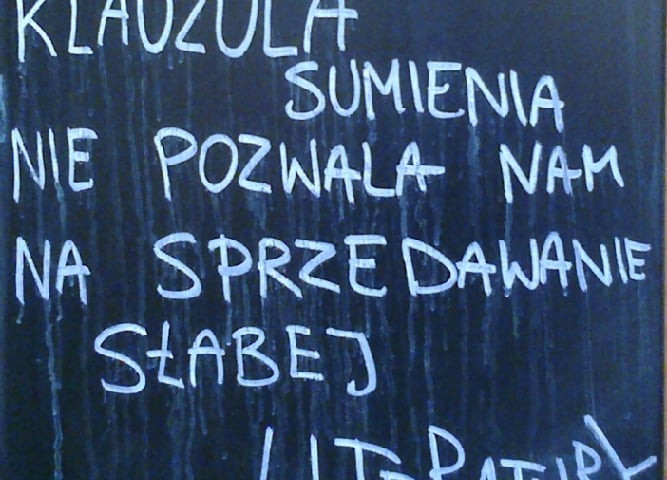 KLAUZULA
SUMIENIA
NIE POZWALA NAM
NA SPRZEDAWANIE
SŁABEJ
LITERATURY